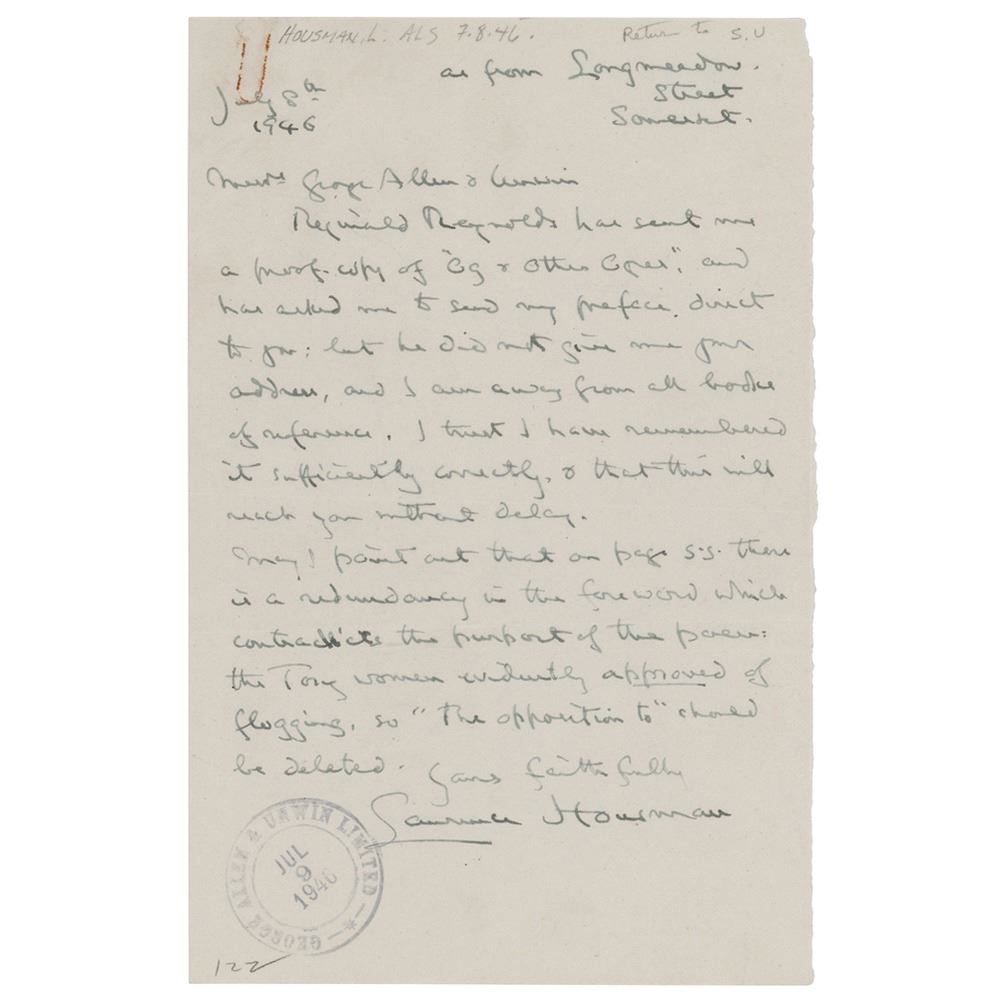 HOUSMAN, L. ALS 7.8.46. Return to S.U
as from Longmeadow.
Street
Somerset.
July 8th
1946
Messrs George Allen & Unwin
Reginald Reynolds has sent me
a proof-copy of "Og & Other Ogres", and
has asked me to send my preface direct
to you; but he did not give me your
address, and I am away from all books
of reference. I trust I have remembered
it sufficiently correctly, & that this will
reach you without delay.
May I point out that on page 55. there
is a redundancy in the foreword which
contradicts the purport of the poem:
the Tory women evidently approved of
flogging, so "the opposition to" should
be deleted. Yours faithfully
Laurence Housman
GEORGE ALLEN & UNWIN LIMITED
JUL
9
1946
122